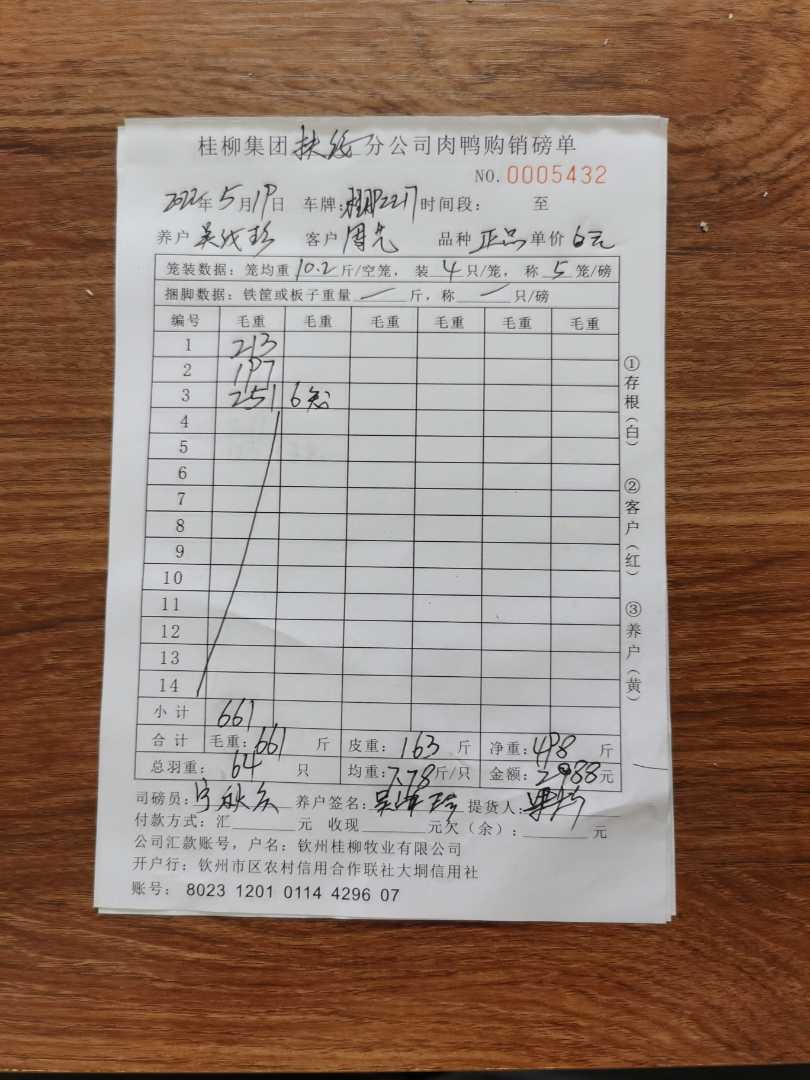 桂柳集团扶绥分公司肉鸭购销磅单
NO.0005432
2022年5月19日 车牌: 2217 时间段: 至
养户 吴 珍 客户 周先 品种 正品 单价 6元
笼装数据: 笼均重 10.2 斤/空笼, 装 4 只/笼, 称 5 笼/磅
捆脚数据: 铁筐或板子重量 — 斤, 称 — 只/磅
编号 毛重 毛重 毛重 毛重 毛重 毛重
1 213
2 197
3 251 6笼
4
5
6
7
8
9
10
11
12
13
14
小计 661
合计 毛重: 661 斤 皮重: 163 斤 净重: 498 斤
总羽重: 64 只 均重: 7.78 斤/只 金额: 2988 元
司磅员: 养户签名: 吴 珍 提货人:
付款方式: 汇 元 收现 元欠(余): 元
公司汇款账号, 户名: 钦州桂柳牧业有限公司
开户行: 钦州市区农村信用合作联社大垌信用社
账号: 8023 1201 0114 4296 07
①存根(白) ②客户(红) ③养户(黄)